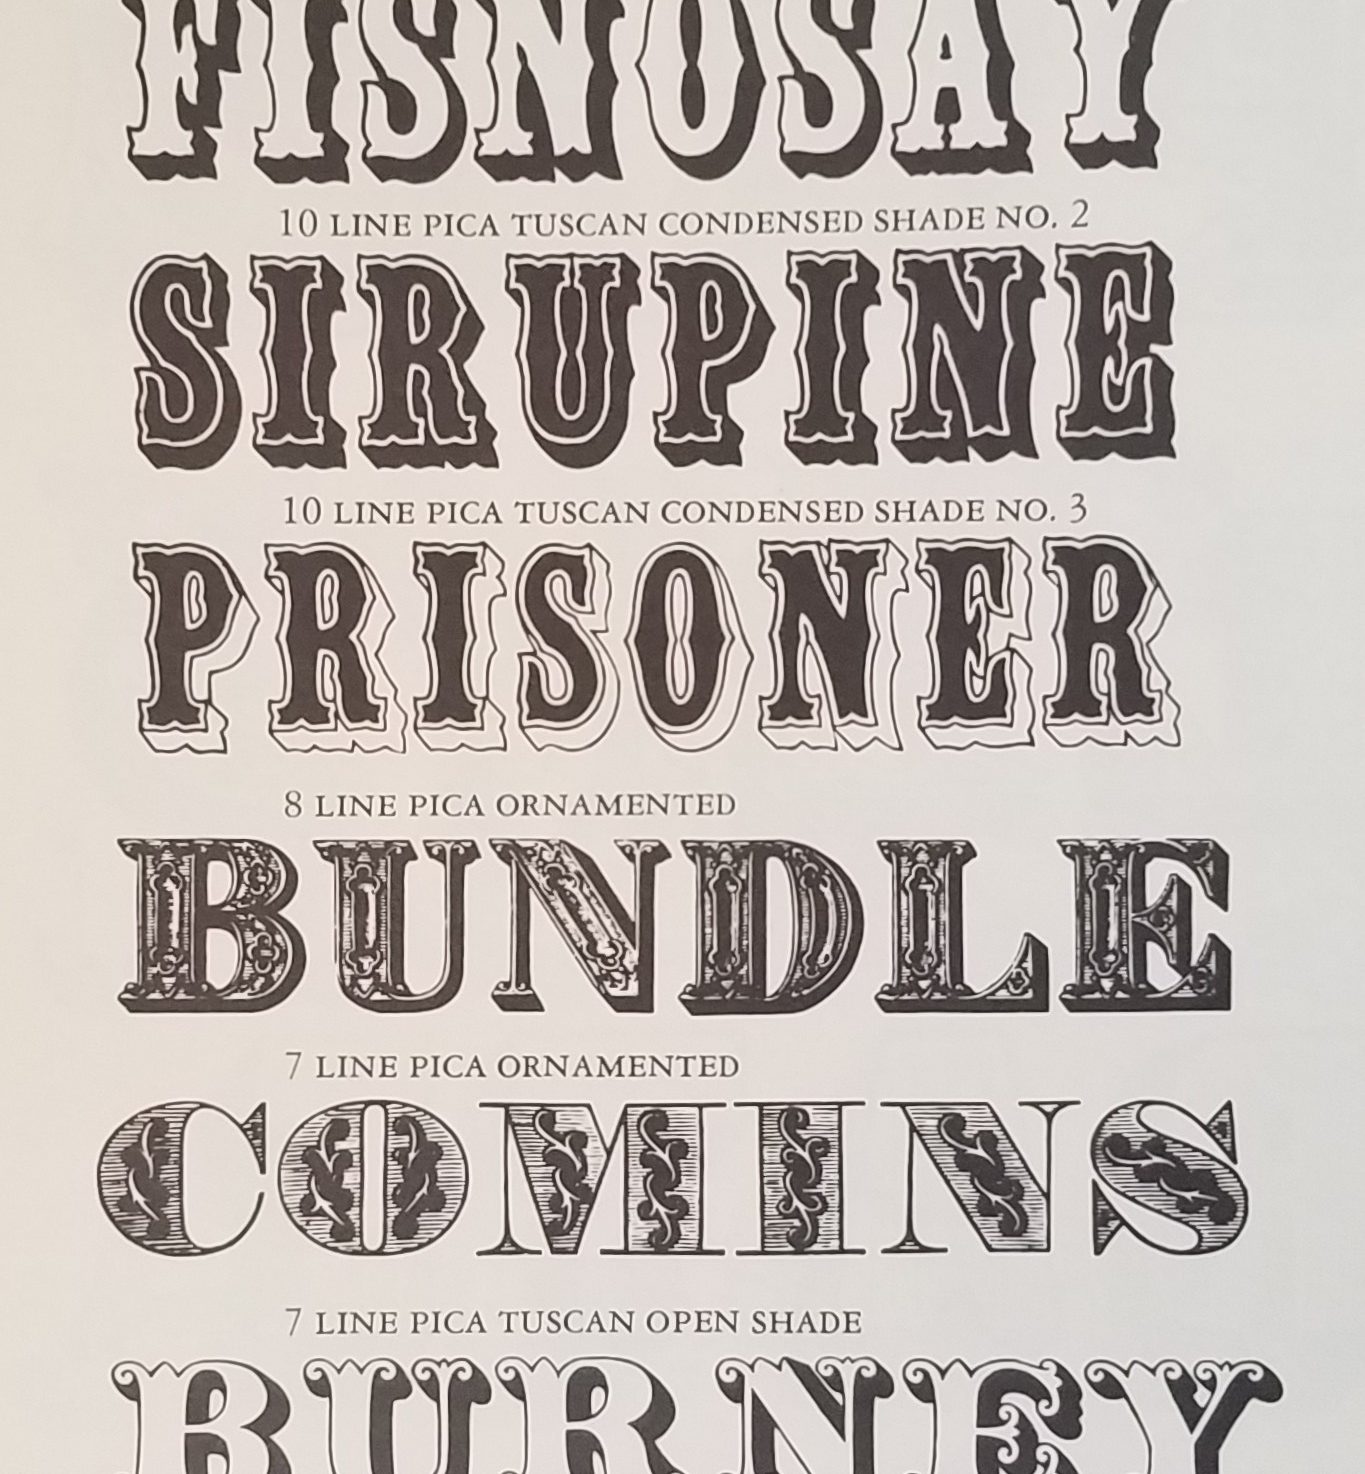 FISNOSAY
10 LINE PICA TUSCAN CONDENSED SHADE NO. 2
SIRUPINE
10 LINE PICA TUSCAN CONDENSED SHADE NO. 3
PRISONER
8 LINE PICA ORNAMENTED
BUNDLE
7 LINE PICA ORNAMENTED
COMINS
7 LINE PICA TUSCAN OPEN SHADE
BURNEY